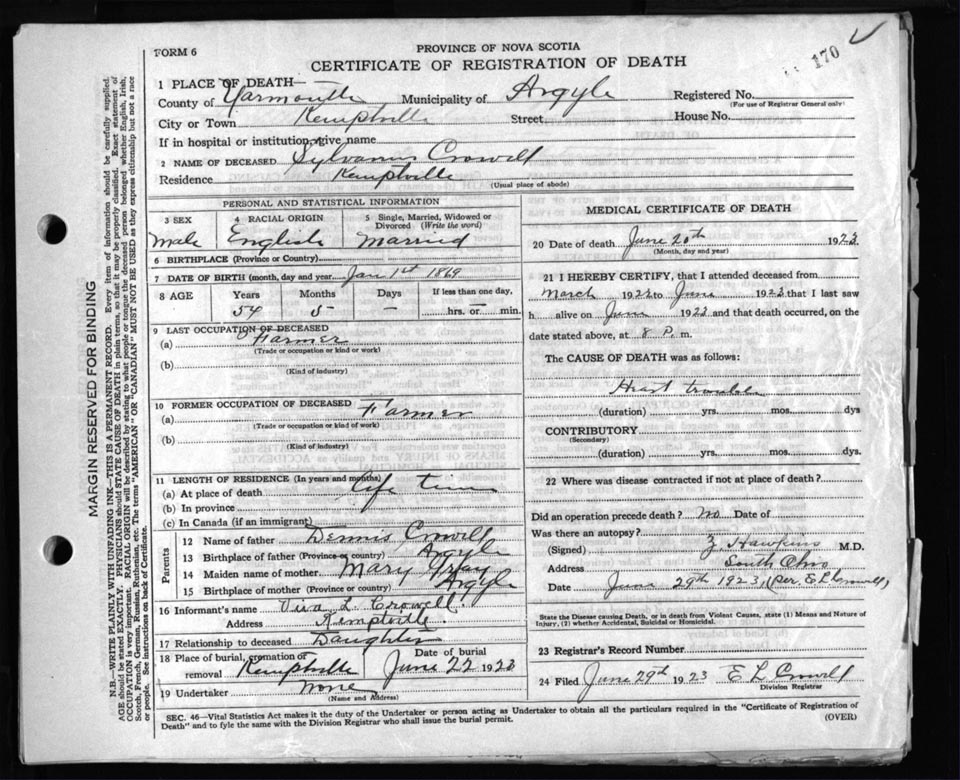 FORM 6
PROVINCE OF NOVA SCOTIA
CERTIFICATE OF REGISTRATION OF DEATH
170
1 PLACE OF DEATH—
County of Yarmouth Municipality of Argyle Registered No.
(For use of Registrar General only)
City or Town Kemptville Street House No.
If in hospital or institution, give name
2 NAME OF DECEASED Sylvanus Crowell
Residence Kemptville
(Usual place of abode)
PERSONAL AND STATISTICAL INFORMATION
3 SEX 4 RACIAL ORIGIN 5 Single, Married, Widowed or Divorced (Write the word)
Male English Married
6 BIRTHPLACE (Province or Country)
7 DATE OF BIRTH (month, day and year) Jan 1st 1869
8 AGE Years Months Days If less than one day,
54 5 — hrs. or — min.
9 LAST OCCUPATION OF DECEASED
(a) Farmer
(Trade or occupation or kind or work)
(b)
(Kind of industry)
10 FORMER OCCUPATION OF DECEASED
(a) Farmer
(Trade or occupation or kind of work)
(b)
(Kind of industry)
11 LENGTH OF RESIDENCE (In years and months)
(a) At place of death life time
(b) In province
(c) In Canada (if an immigrant)
Parents
12 Name of father Dennis Crowell
13 Birthplace of father (Province or country) Argyle
14 Maiden name of mother Mary Gray
15 Birthplace of mother (Province or country) Argyle
16 Informant's name L. Crowell
Address Kemptville
17 Relationship to deceased Daughter
18 Place of burial, cremation or removal Kemptville Date of burial June 22 1923
19 Undertaker None
(Name and Address)
MEDICAL CERTIFICATE OF DEATH
20 Date of death June 20th 1923
(Month, day and year)
21 I HEREBY CERTIFY, that I attended deceased from
March 1922 to June 1923 that I last saw
h alive on June 1923 and that death occurred, on the
date stated above, at 8 P. m.
The CAUSE OF DEATH was as follows:
Heart trouble
(duration) yrs. mos. dys
CONTRIBUTORY
(Secondary)
(duration) yrs. mos. dys.
22 Where was disease contracted if not at place of death?
Did an operation precede death? No Date of
Was there an autopsy?
(Signed) Z. Hawkins M.D.
Address South Ohio
Date June 29th 1923, (per. E L Crowell)
State the Disease causing Death, or in death from Violent Causes, state (1) Means and Nature of
Injury, (2) whether Accidental, Suicidal or Homicidal.
23 Registrar's Record Number
24 Filed June 29th 1923 E L Crowell
Division Registrar
SEC. 46—Vital Statistics Act makes it the duty of the Undertaker or person acting as Undertaker to obtain all the particulars required in the "Certificate of Registration of
Death" and to fyle the same with the Division Registrar who shall issue the burial permit.
(OVER)
MARGIN RESERVED FOR BINDING
N.B.—WRITE PLAINLY WITH UNFADING INK—THIS IS A PERMANENT RECORD. Every item of information should be carefully supplied.
AGE should be stated EXACTLY. PHYSICIANS should STATE CAUSE OF DEATH in plain terms, so that it may be properly classified. Exact statement of
OCCUPATION is very important. RACIAL ORIGIN will be described by stating to what people or tongue the deceased person belonged whether English, Irish,
Scotch, French, German, Russian, Ruthenian, etc. The terms "AMERICAN" OR "CANADIAN" MUST NOT BE USED as they express citizenship but not a race
or people. See instructions on back of Certificate.